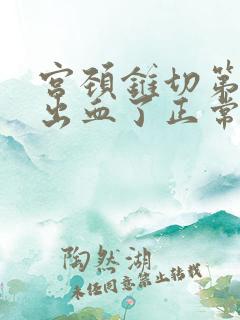 宫颈锥切第
出血了正常
陶然湖
未经同意禁止转载